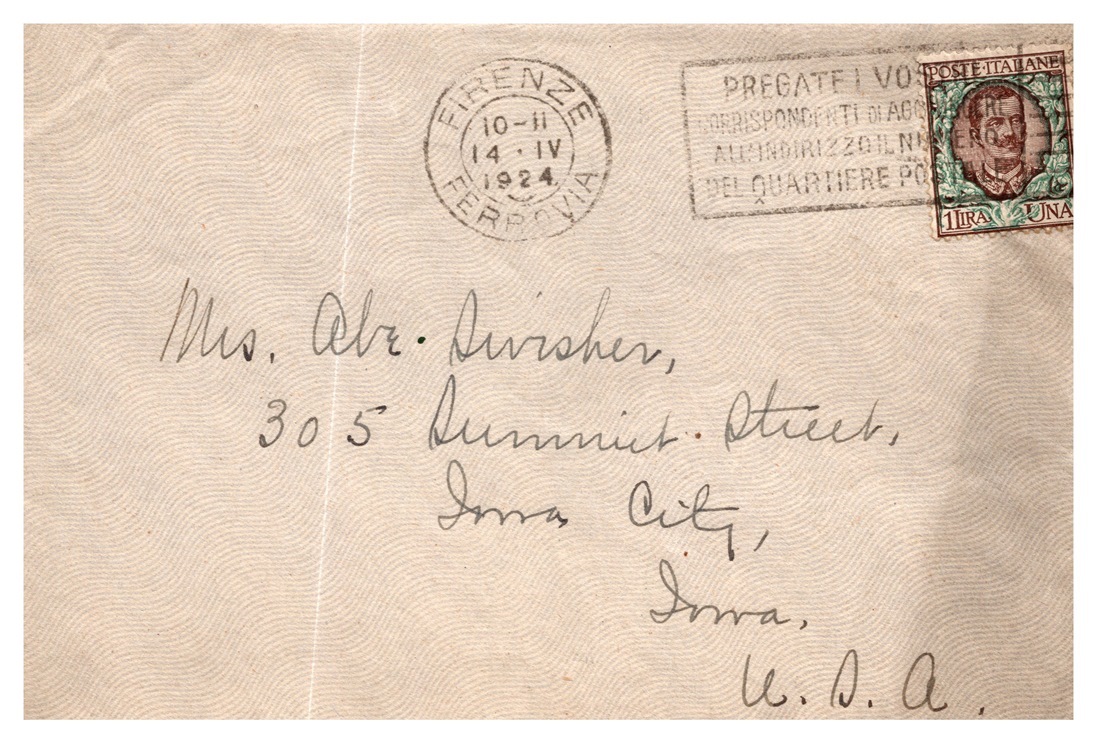 FIRENZE
10-11
14 · IV
1924
FERROVIA
PREGATE I VOS
CORRISPONDENTI DI AGG
ALL'INDIRIZZO IL
DEL QUARTIERE POSTALE
POSTE·ITALIANE
1 LIRA UNA
Mrs. Abe. Swisher,
305 Summit Street,
Iowa City,
Iowa.
U. S. A.